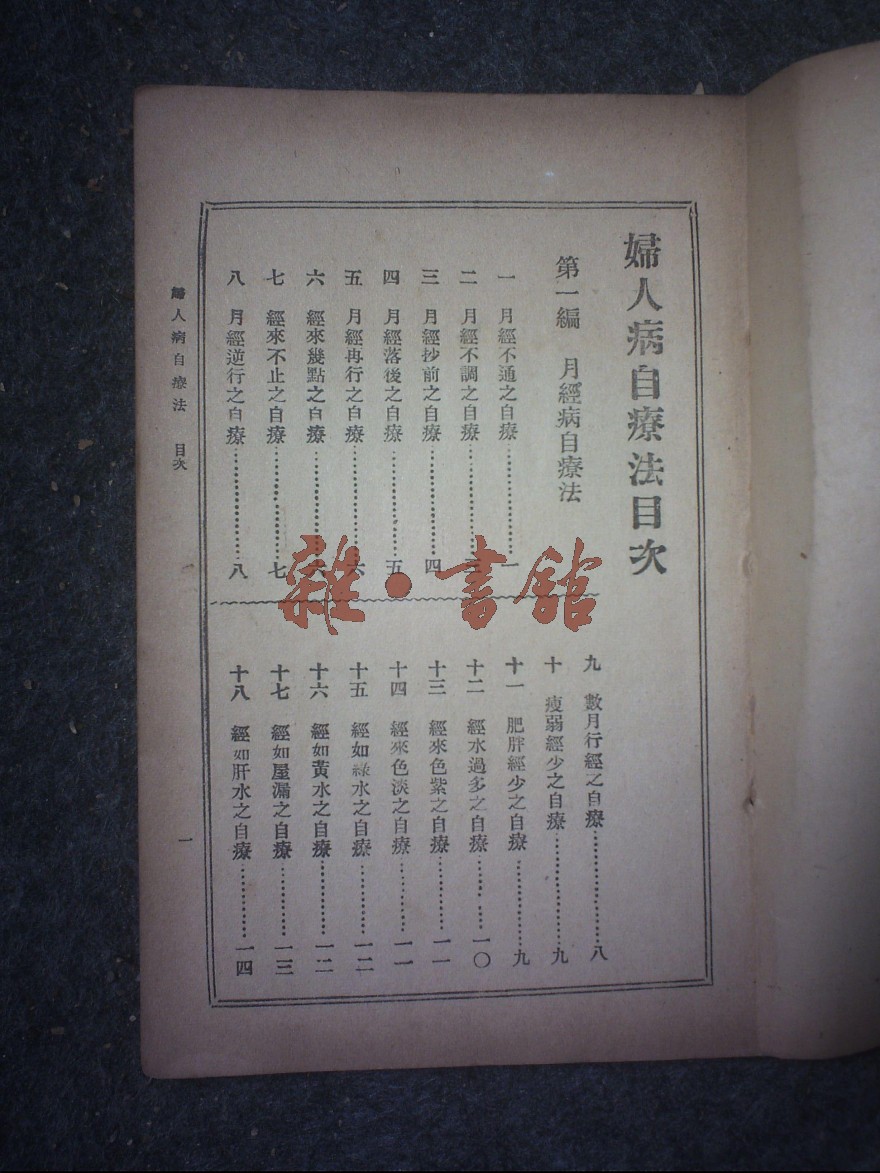 婦人病自療法目次
第一編 月經病自療法
一 月經不通之自療…………一
二 月經不調之自療…………三
三 月經抄前之自療…………四
四 月經落後之自療…………五
五 月經再行之自療…………六
六 經來幾點之自療…………六
七 經來不止之自療…………七
八 月經逆行之自療…………八
九 數月行經之自療…………八
十 瘦弱經少之自療…………九
十一 肥胖經少之自療…………九
十二 經水過多之自療…………一〇
十三 經來色紫之自療…………一一
十四 經來色淡之自療…………一一
十五 經如綠水之自療…………一二
十六 經如黃水之自療…………一二
十七 經如屋漏之自療…………一三
十八 經如肝水之自療…………一四
婦人病自療法 目次
一
雜·書館